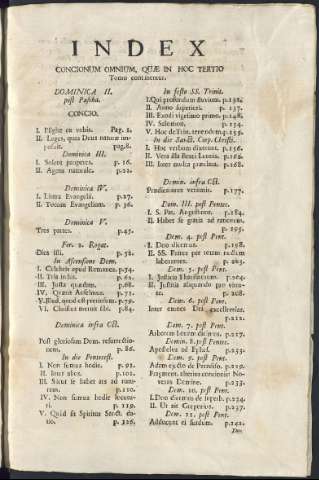 INDEX
CONCIONUM OMNIUM, QUÆ IN HOC TERTIO
Tomo continentur.
DOMINICA II.
post Pascha.
CONCIO.
I. vobis. Pag. 1.
II. Leges, quas Deus naturæ im-
posuit. pag. 8.
Dominica III.
I. Solent properare. p. 16.
II. Agens naturale. p. 22.
Dominica IV.
I. Littera Evangelii. p. 27.
II. Totum Evangelium. p. 36.
Dominica V.
Tres partes. p. 45.
Fer. 2. Rogat.
Dies isti. p. 52.
In Ascensione Dom.
I. Celebris apud Romanos. p. 54.
II. Tria in his. p. 61.
III. Justa quædam. p. 68.
IV. Quærit Anselmus. p. 72.
V. Illud, quod est pretiosum. p. 79.
VI. Christus meruit sibi. p. 84.
Dominica infra Oct.
Post gloriosam Dom. resurrectio-
nem. p. 86.
In die Pentecost.
I. Non semus hodie. p. 92.
II. Inter alios. p. 102.
III. Sicut se habet ars ad natu-
ram. p. 110.
IV. Non semus hodie locutu-
ri. p. 119.
V. Quid sit Spiritus Sancti da-
tio. p. 126.
In festo SS. Trinit.
I. Qui profundum fluvium. p. 132.
II. Anno superiori. p. 137.
III. Exodi vigesimo primo. p. 148.
IV. Salomon. p. 154.
V. Hoc de Trin. tenendum. p. 155.
In die Sanct. Corp. Christi.
I. Hoc verbum dixerunt. p. 156.
II. Vera illa Beati Laurentii. p. 166.
III. Inter multa præclara. p. 168.
Domin. infra Oct.
Prædicationes veteris. p. 177.
Dom. III. post Pentec.
I. S. Pat. Augustinus. p. 184.
II. Habet se gratia ad naturam.
p. 195.
Dom. 4. post Pent.
I. Duo dicemus. p. 198.
II. SS. Patres per totam noctem
laborantes. p. 203.
Dom. 5. post Pent.
I. Justitia Christianorum. p. 204.
II. Justitia aliquando pro virtu-
te. p. 208.
Dom. 6. post Pent.
Inter omnes Dei excellentias.
p. 221.
Dom. 7. post Pent.
Arborem bonam dicimus. p. 227.
Domin. 8. post Pentec.
Apostolus ad Ephes. p. 233.
Dom. 9. post Pent.
Adam ejecto de Paradiso. p. 229.
Fragment. alterius concionis: No-
verat Domine. p. 233.
Dom. 10. post Pent.
I. Duo dicemus de superb. p. 234.
II. Ut ait Gregorius. p. 237.
Dom. 11. post Pent.
Adducunt ei surdum. p. 242.
Dom.